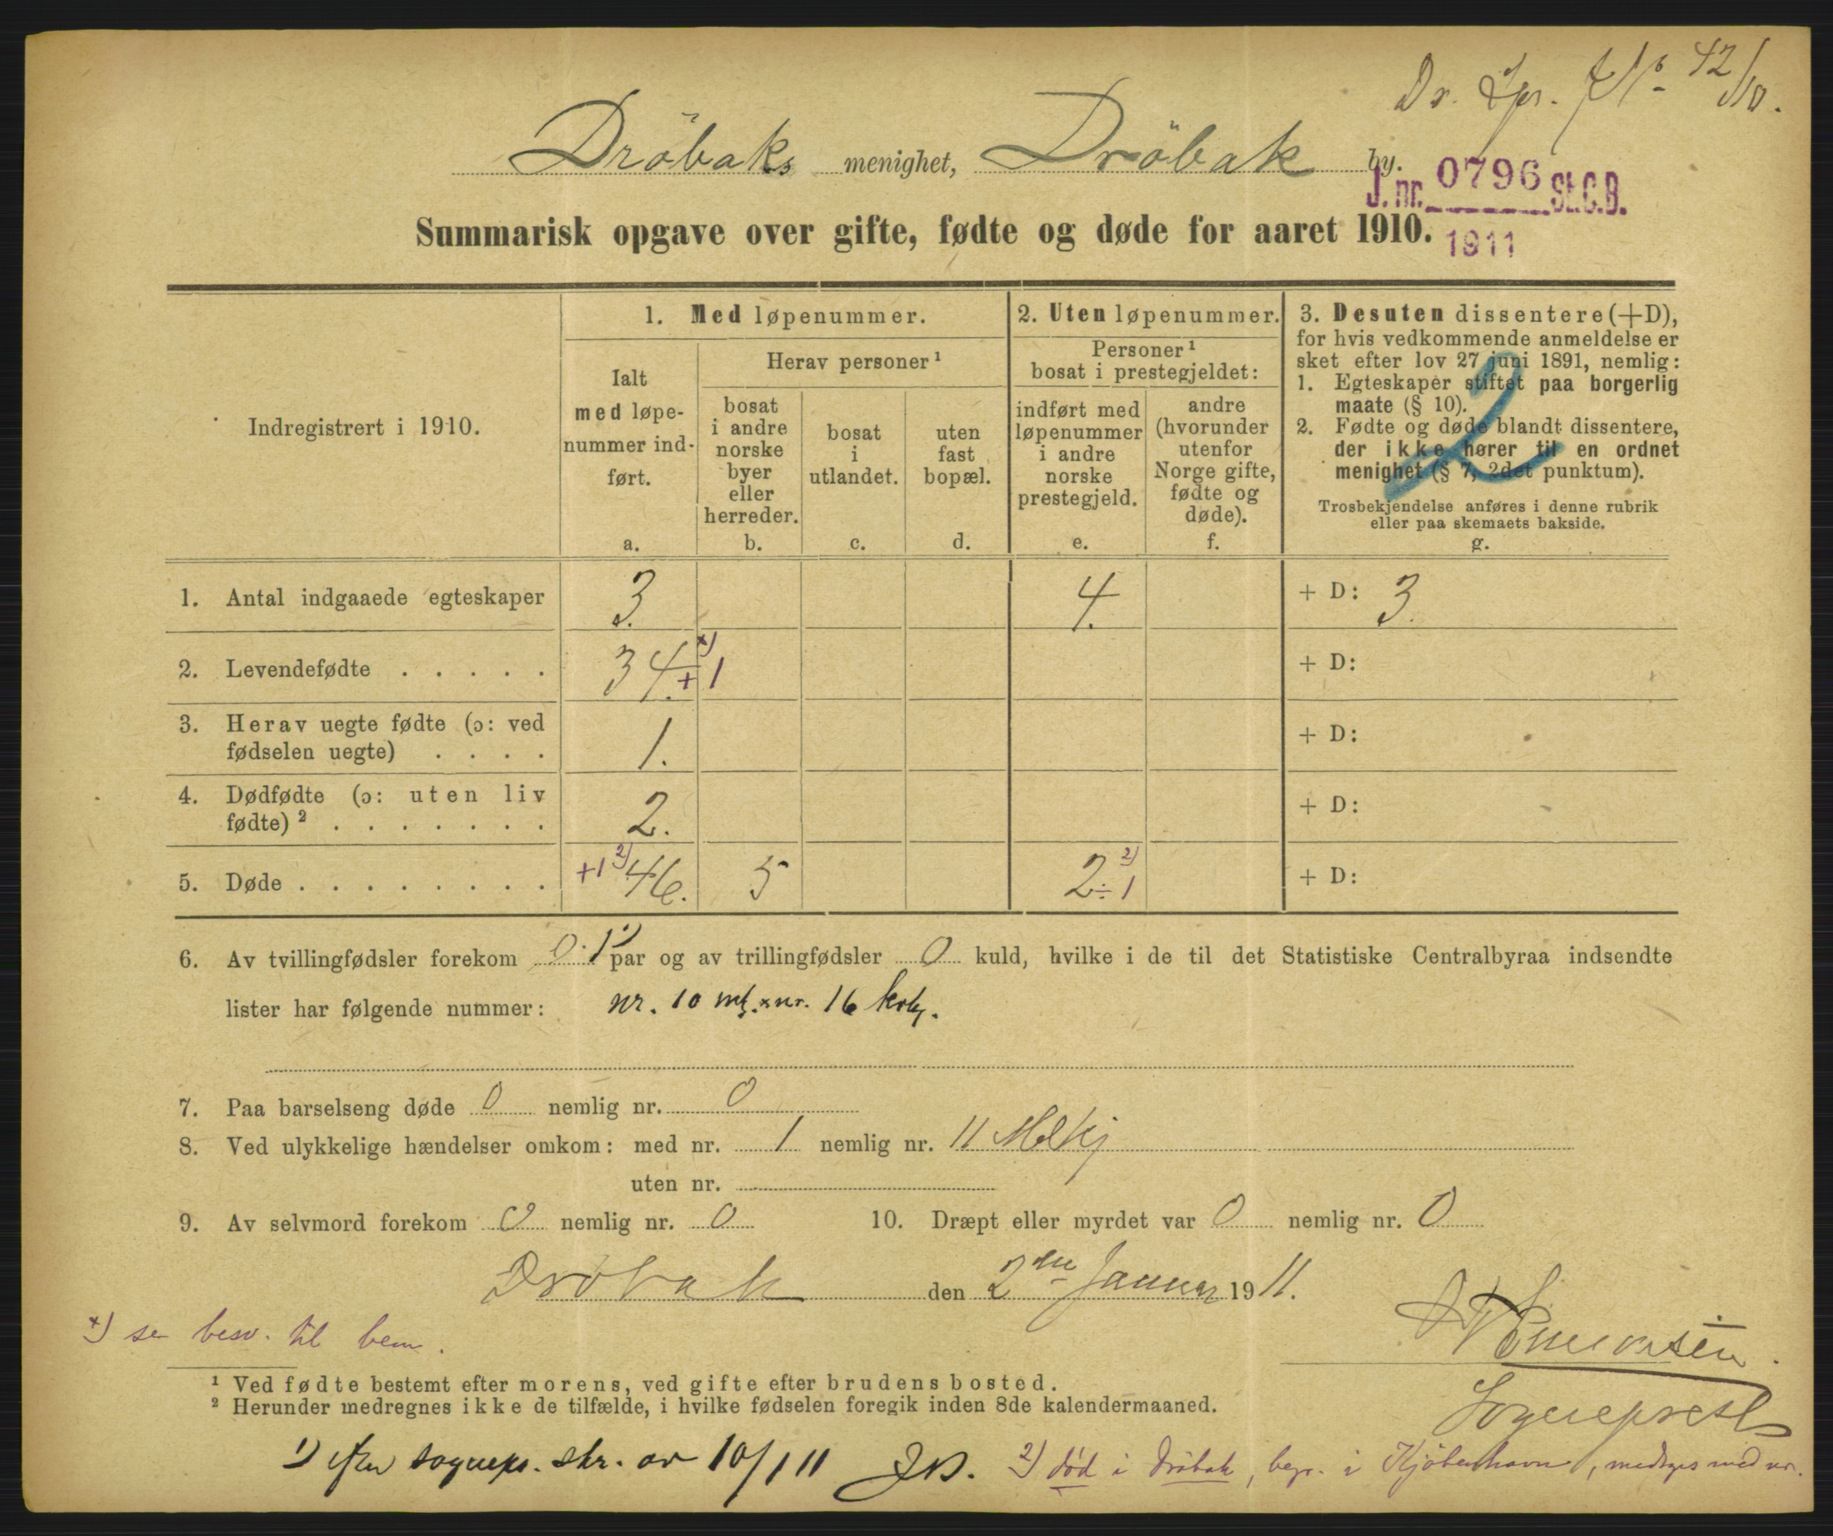 Dr. Spr. J No 42/10.
Dröbaks menighet, Dröbak by.
J. nr. 0796 St.C.B.
1911
Summarisk opgave over gifte, fødte og døde for aaret 1910.
Indregistrert i 1910.
1. Med løpenummer.
Ialt
med løpe-
nummer ind-
ført.
a.
Herav personer ¹
bosat
i andre
norske
byer
eller
herreder.
b.
bosat
i
utlandet.
c.
uten
fast
bopæl.
d.
2. Uten løpenummer.
Personer ¹
bosat i prestegjeldet:
indført med
løpenummer
i andre
norske
prestegjeld.
e.
andre
(hvorunder
utenfor
Norge gifte,
fødte og
døde).
f.
3. Desuten dissentere (+D),
for hvis vedkommende anmeldelse er
sket efter lov 27 juni 1891, nemlig:
1. Egteskaper stiftet paa borgerlig
maate (§ 10).
2. Fødte og døde blandt dissentere,
der ikke hører til en ordnet
menighet (§ 7, 2det punktum).
Trosbekjendelse anføres i denne rubrik
eller paa skemaets bakside.
g.
2
1. Antal indgaaede egteskaper 3. 4. + D: 3.
2. Levendefødte . . . . . 34. +1 x) + D:
3. Herav uegte fødte (ɔ: ved
fødselen uegte) . . . . 1. + D:
4. Dødfødte (ɔ: uten liv
fødte) ² . . . . . . . 2. + D:
5. Døde . . . . . . . . +1 2) 46. 5 2 ÷ 1 2) + D:
6. Av tvillingfødsler forekom 0. 1 1) par og av trillingfødsler 0 kuld, hvilke i de til det Statistiske Centralbyraa indsendte
lister har følgende nummer: nr. 10 mk. x nr. 16 kvk.
7. Paa barselseng døde 0 nemlig nr. 0
8. Ved ulykkelige hændelser omkom: med nr. 1 nemlig nr. 11 Mkj
uten nr.
9. Av selvmord forekom 0 nemlig nr. 0 10. Dræpt eller myrdet var 0 nemlig nr. 0
Dröbak den 2den Januar 1911.
x) se besv. til bem.
Sogneprest
¹ Ved fødte bestemt efter morens, ved gifte efter brudens bosted.
² Herunder medregnes ikke de tilfælde, i hvilke fødselen foregik inden 8de kalendermaaned.
1) efter sognepr. skr. av 10/1 11 2) død i Drøbak, begr. i Kjøbenhavn, medtges med nr.